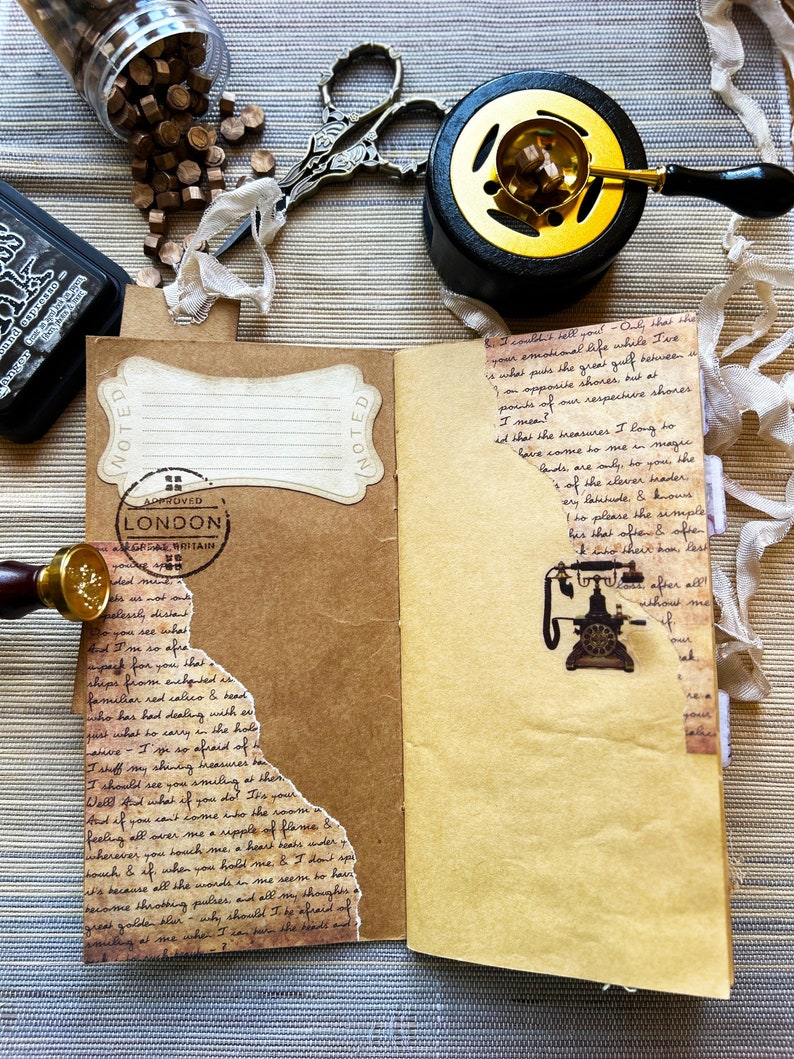 ound espresso
anger
NOTED
NOTED
APPROVED
LONDON
GREAT BRITAIN
you've spe
ded mine,
ets us not onl
opelessly distant
Do you see what
And I'm so afra
unpack for you, that
ships from enchanted is
familiar red calico & bead
who has had dealing with
just what to carry in the hold
native - I'm so afraid of
I stuff my shining treasures ba
I should see you smiling at them
Well! And what if you do? It's your
And if you can't come into the room
feeling all over me a ripple of flame, &
wherever you touch me, a heart beats under y
touch, & if, when you hold me, & I don't spe
it's because all the words in me seem to have
become throbbing pulses, and all my thoughts a
great golden blur - why should I be afraid of
smiling at me when I can turn the beads and
I couldn't tell you? - Only that the
your emotional life while I've
s what puts the great gulf between u
on opposite shores, but at
points of our respective shores
I mean?
id that the treasures I long to
have come to me in magic
lands, are only, to you, the
of the clever trader,
ery latitude, & knows
to please the simple
his that often & often
k into their box, lest
loss, after all!
without me
if,
our
ak,
re a
calico